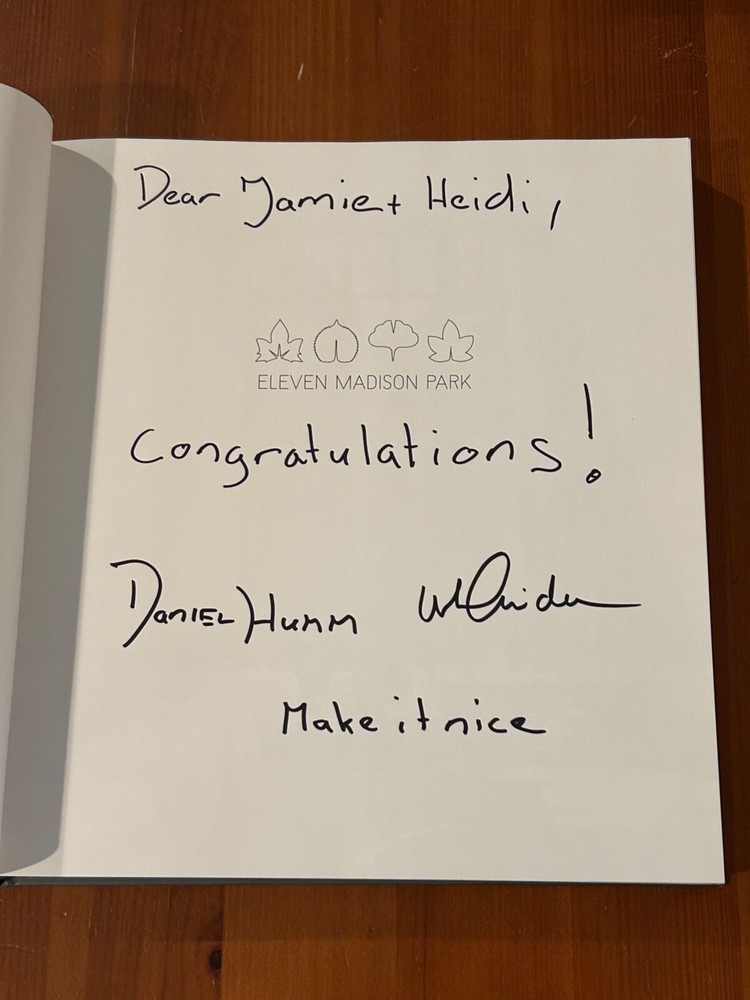 Dear Jamie + Heidi,
ELEVEN MADISON PARK
Congratulations!
DANIEL HUMM
Make it nice